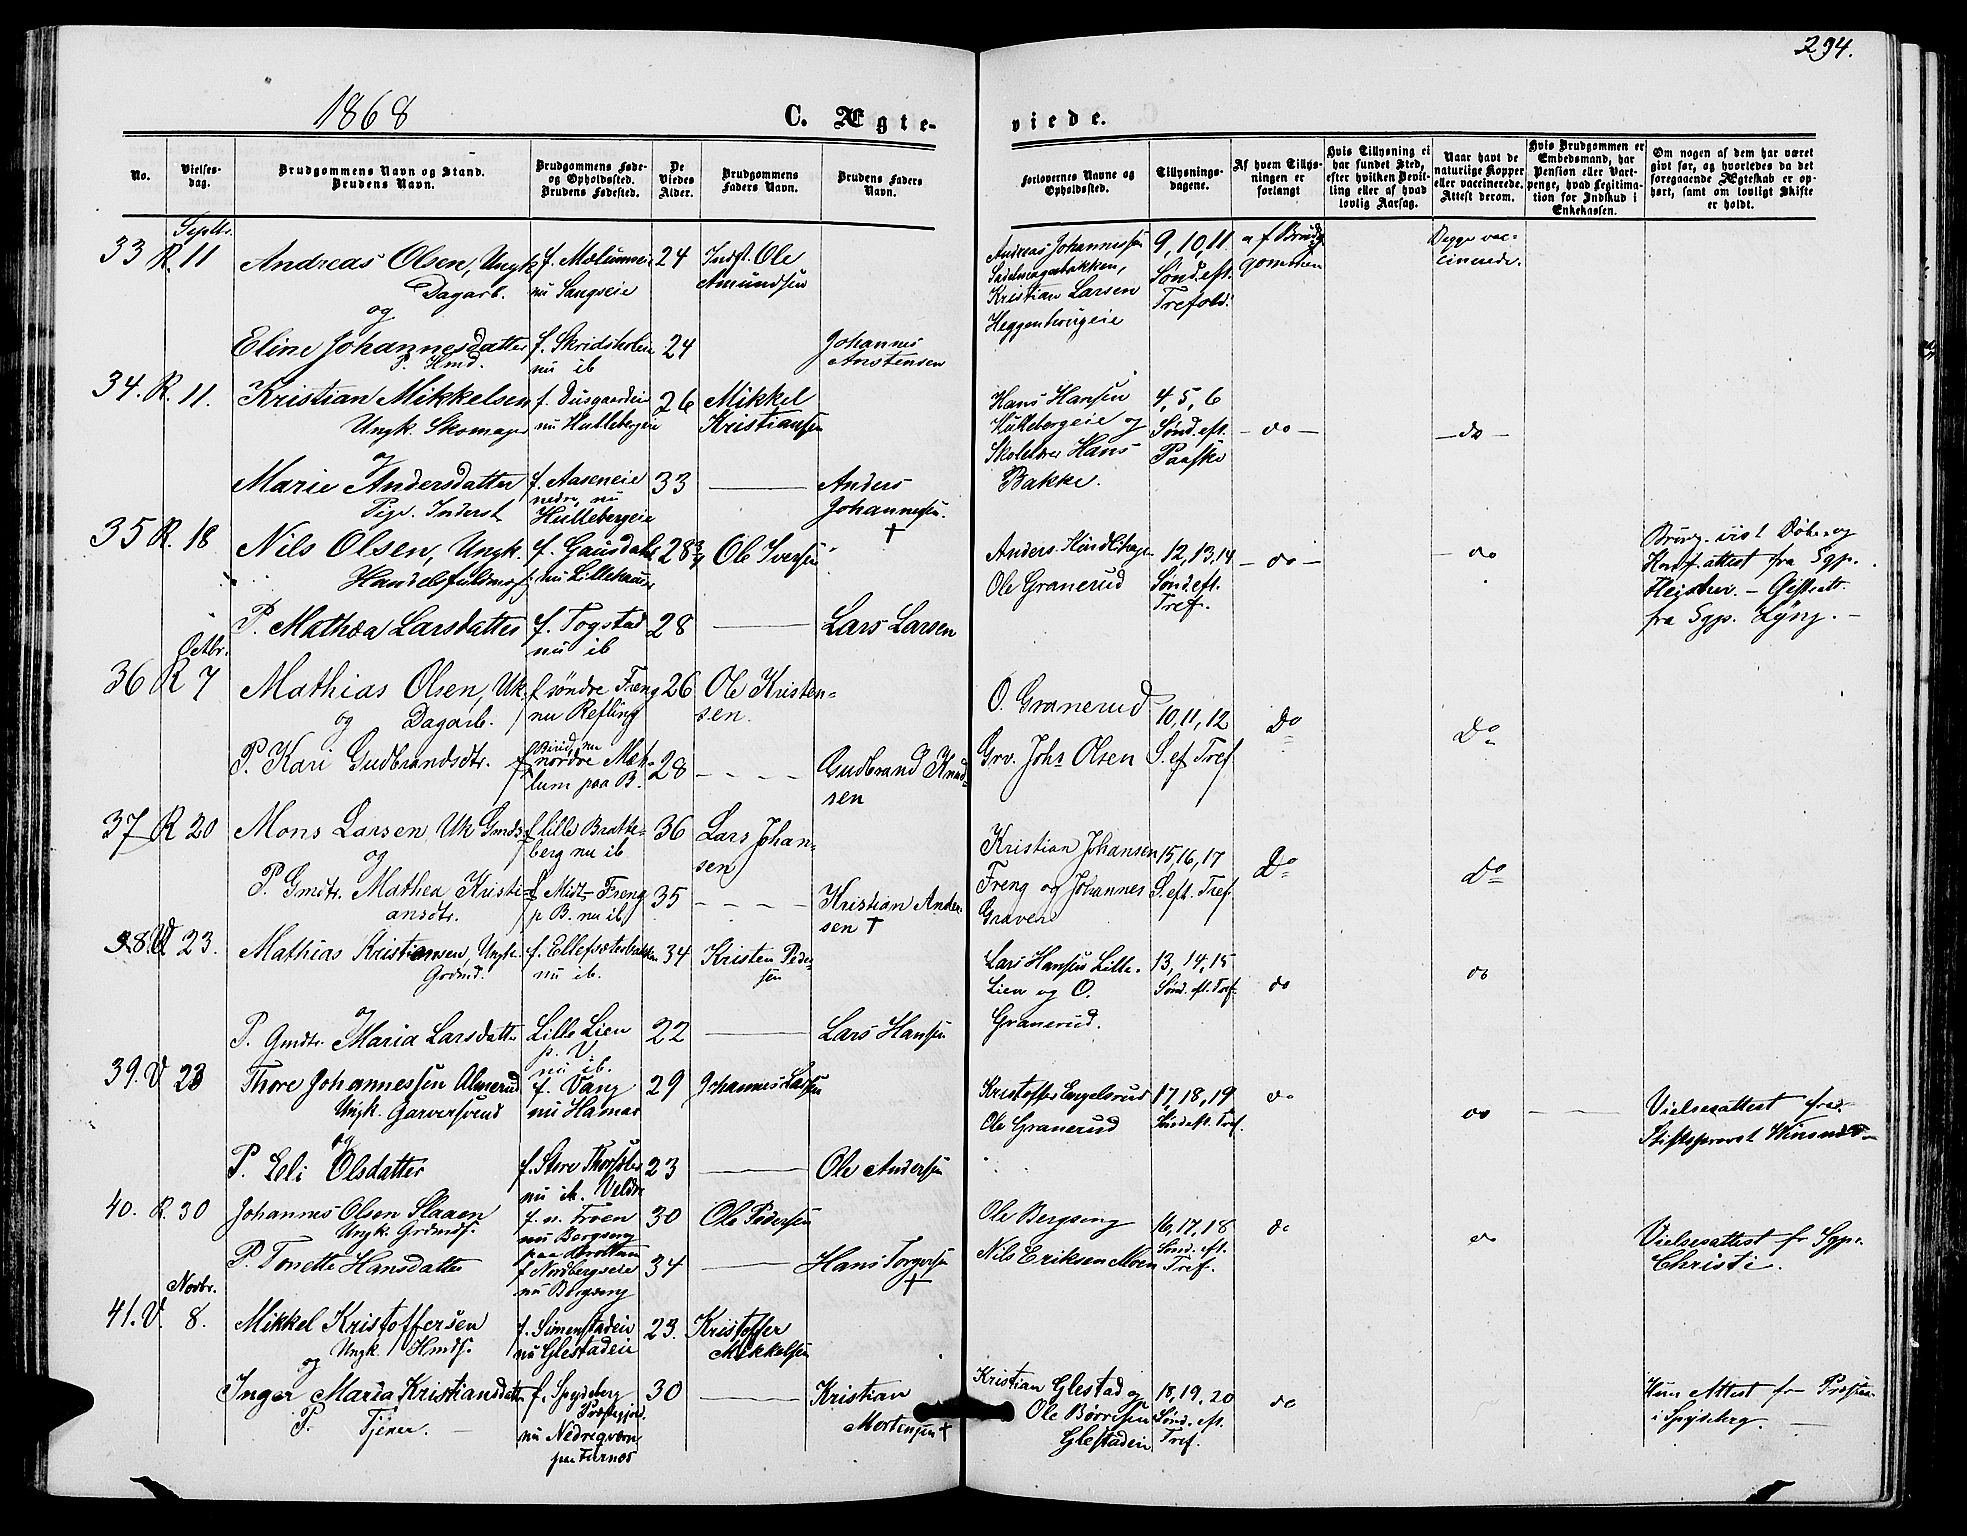 294.
1868
C. Ægte-
viede.
No.
Vielses-
dag.
Brudgommens Navn og Stand.
Brudens Navn.
Brudgommens Føde-
og Opholdssted.
Brudens Fødested.
De
Viedes
Alder.
Brudgommens
Faders Navn.
Brudens Faders
Navn.
Forlovernes Navne og
Opholdssted.
Tillysnings-
dagene.
Af hvem Tillys-
ningen er
forlangt
Hvis Tillysning ei
har fundet Sted,
efter hvilken Bevil-
ling eller af hvad
lovlig Aarsag.
Naar havt de
naturlige Kopper
eller vaccinerede.
Attest derom.
Hvis Brudgommen er
Embedsmand, har
Pension eller Vart-
penge, hvad Legitima-
tion for Indskud i
Enkekassen.
Om nogen af dem har været
gift før, og hvorledes da det
foregaaende Ægteskab er op-
hørt, samt om lovligt Skifte
er holdt.
Septbr.
33 R. 11 Andreas Olsen, Ungk.
Dagarb.
og
f. Mælumeie
nu Sangseie
24
Indst. Ole
Amundsen
Andreas Johannessen
Kristian Larsen
Heggenhougeie
9, 10, 11
Sønd. eft.
Trefold.
af Brudg
gommen
Begge vac-
cinerede.
Eline Johannesdatter
P. Hmd.
f. Skridsholen
nu ib
24
Johannes
Anstensen
34. R. 11. Kristian Mikkelsen
Ungk. Skomager
og
nu Hullebergeie
26
Mikkel
Kristiansen
Hans Hansen
Hullebergeie og
Hans
Bakke.
4, 5, 6
Sønd. eft.
Paaske
- do -
- do -
Marie Andersdatter
Pige. Inderst
f. Aaseneie
nedre, nu
Hullebergeie
33
Anders
Johannesen.
†
35 R. 18 Nils Olsen, Ungk.
Handelsfuldmægt.
f. Gausdal
nu Lillehammer
28 3/4
Ole Iversen
Anders
Ole Granerud
12, 13, 14
Sønd. eft.
Tref.
- do -
- do
Brudg. vist Døbe- og
Konf. attest fra Sgp.
- Giftatt.
fra Sgp. Lyng. -
P. Mathea Larsdatter
f. Togstad
nu ib
28
Lars Larsen
Octbr.
36 R 7 Mathias Olsen, Uk.
og Dagarb.
f søndre Freng
nu Refling
26
Ole Kristen-
sen.
O. Granerud
Grv. Johs Olsen
10, 11, 12
S. ef. Tref
Do
Do
P. Kari Gudbrandsdtr.
f Birid, nu
nordre Mæ-
lum paa B.
28
Gudbrand Knud-
sen
37 R 20 Mons Larsen Uk Gmds.
og
f lille Bratte-
berg nu ib
36
Lars Johan-
sen
Kristian Johansen
Freng og Johannes
Graven
15, 16, 17
S. eft. Tref
Do
Do
P. Gmdtr. Mathea Kristi-
ansdtr.
f Midt-Freng
p B. nu ib
35
Kristian Ander-
sen †
38. V 23. Mathias Kristiansen, Ungk.
Grdmd.
og
f. Ellefsæterbakken
nu ib.
34
Kristen Peder-
sen
Lars Hansen Lille-
Lien og O.
Granerud.
13, 14, 15
Sønd. eft. Tref.
do
do
P. Gmdtr. Maria Larsdatter
Lille Lien
p. V.
nu ib.
22
Lars Hansen
39. V 23 Thore Johannessen Almerud
Ungk. Garversvend
og
f. Vang
nu Hamar
29
Johannes Larsen
Kristoffer Engelsrud
Ole Granerud
17, 18, 19
Sønd. eft. Tref.
do
do
Vielsesattest fra
Stiftsprovst
P. Eli Olsdatter
f. Store
nu ib. Veldre
23
Ole Andersen
40. R. 30 Johannes Olsen Slaaen
Ungk. Grdmds.
f. n. Troen
nu Bergseng
30
Ole Pedersen
Ole Bergseng
Nils Eriksen Moen
16, 17, 18
Sønd. eft.
Tref.
do
do
Vielsesattest fr Sgp.
Christie.
P. Tonette Hansdatter
f Nordbergseie
nu Bergseng
34
Hans Torgersen
†
Novbr.
41. V. 8. Mikkel Kristoffersen
Ungk. Hmds.
og
f. Simenstadeie
nu Glestadeie
23.
Kristoffer
Mikkelsen
Kristian Glestad og
Ole Børresen
Glestadeie
18, 19, 20
Sønd. eft.
Tref.
do
Hun Attest fr Præsten
i Spydeberg. -
Inger Maria Kristiansdatter
P. Tjener. -
f. Spydeberg
Præstegjæld
nu Nedregvern
paa Furnes
30
Kristian
Mortensen †